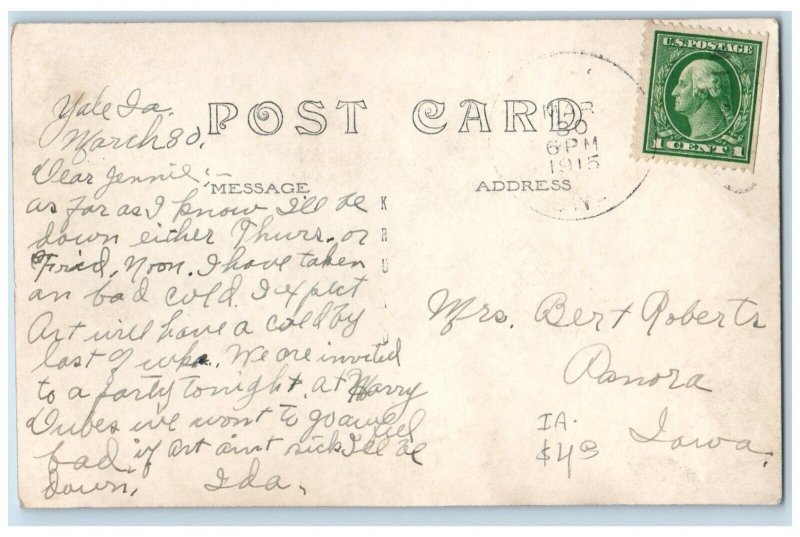 POST CARD
Yale Ia.
March 30.
Dear Jennie:-
MESSAGE
as far as I know I'll be
down either Thurs. or
Fried, Noon. I have taken
an bad cold. I expect
Art will have a cold by
last of wk. We are invited
to a party tonight. At Harry
Dubes we wont to go awful
bad if Art aint sick I'll be
down. Ida.
KRUXO
ADDRESS
MAR
30
6 PM
1915
U.S. POSTAGE
1 CENT 1
Mrs. Bert Roberts
Panora
Iowa.
IA.